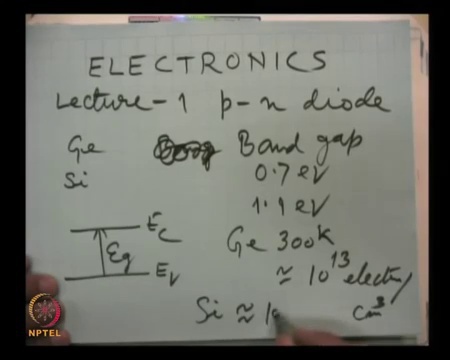 ELECTRONICS
Lecture-1 p-n diode
Ge Band gap
Si 0.7 eV
1.1 eV
Ec
Eg
Ev
Ge 300K
≈ 10¹³ electrons/
cm³
Si ≈ 10
NPTEL